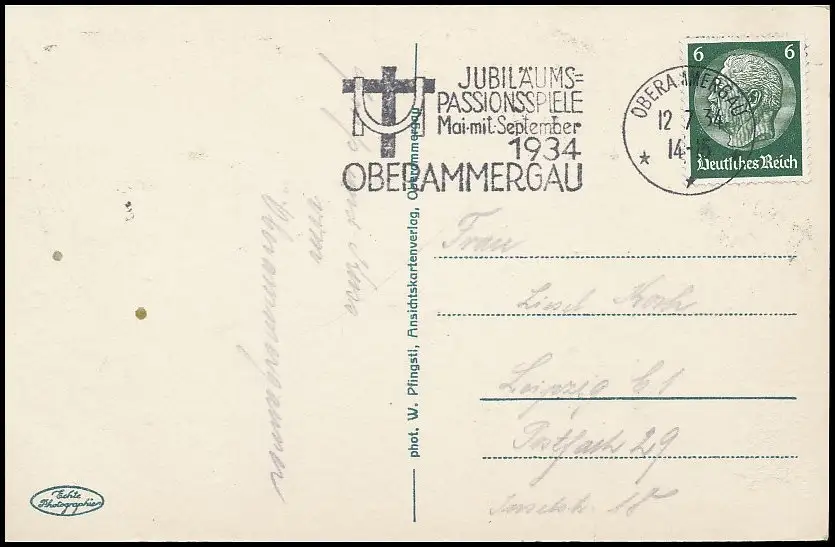 JUBILÄUMS=
PASSIONSSPIELE
Mai-mit-September
1934
OBERAMMERGAU
OBERAMMERGAU
12 7. 34
14-15
6 6
Deutsches Reich
Frau
Liesel Koch
Leipzig C1
Postfach 29
phot. W. Pfingstl, Ansichtskartenverlag, Oberammergau
Oberammergauer
Echte
Photographie